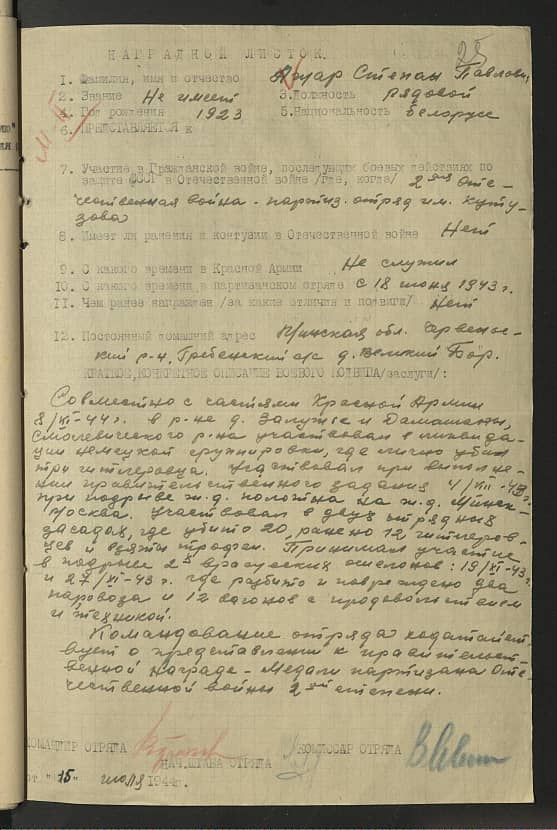 25
НАГРАДНОЙ ЛИСТОК.
1. Фамилия, имя и отчество Ахрар Степан Павлович
2. Звание Не имеет 3. Должность рядовой
4. Год рождения 1923 5. Национальность Белорус
6. ПРЕДСТАВЛЯЕТСЯ К
7. Участие в Гражданской войне, последующих боевых действиях по
защите СССР в Отечественной войне /где, когда/ 2ая Оте-
чественная война - партиз. отряд им. Куту-
зова
8. Имеет ли ранения и контузии в Отечественной войне Нет
9. С какого времени в Красной Армии Не служил
10. С какого времени в партизанском отряде с 18 июня 1943 г.
11. Чем ранее награжден /за какие отличия и подвиги/ Нет
12. Постоянный домашний адрес Минская обл. Червенс-
кий р-н, Гребенский с/с д. Великий Бор.
КРАТКОЕ, КОНКРЕТНОЕ ОПИСАНИЕ БОЕВОГО ПОДВИГА /заслуги/:
Совместно с частями Красной Армии
в р-не д. Залужье и Домашаны,
Смолевического р-на участвовал в ликвида-
ции немецкой группировки, где лично убил
три гитлеровца. Участвовал при выполне-
нии правительственного задания
при подрыве ж.д. полотна на ж.д. Минск-
Москва. Участвовал в двух отрядных
засадах, где убито 20, ранено 12 гитлеров-
цев и взяты трофеи. Принимал участие
в подрыве 2х вражеских эшелонов: 19/XI-43 г.
и 27/XI-43 г. где разбито и повреждено два
паровоза и 12 вагонов с продовольствием
и техникой.
Командование отряда ходатайст-
вует о представлении к правительст-
венной награде - Медали партизана Оте-
чественной войны 2ой степени.
КОМАНДИР ОТРЯДА КОМИССАР ОТРЯДА
НАЧ. ШТАБА ОТРЯДА
от "15" июля 1944 г.